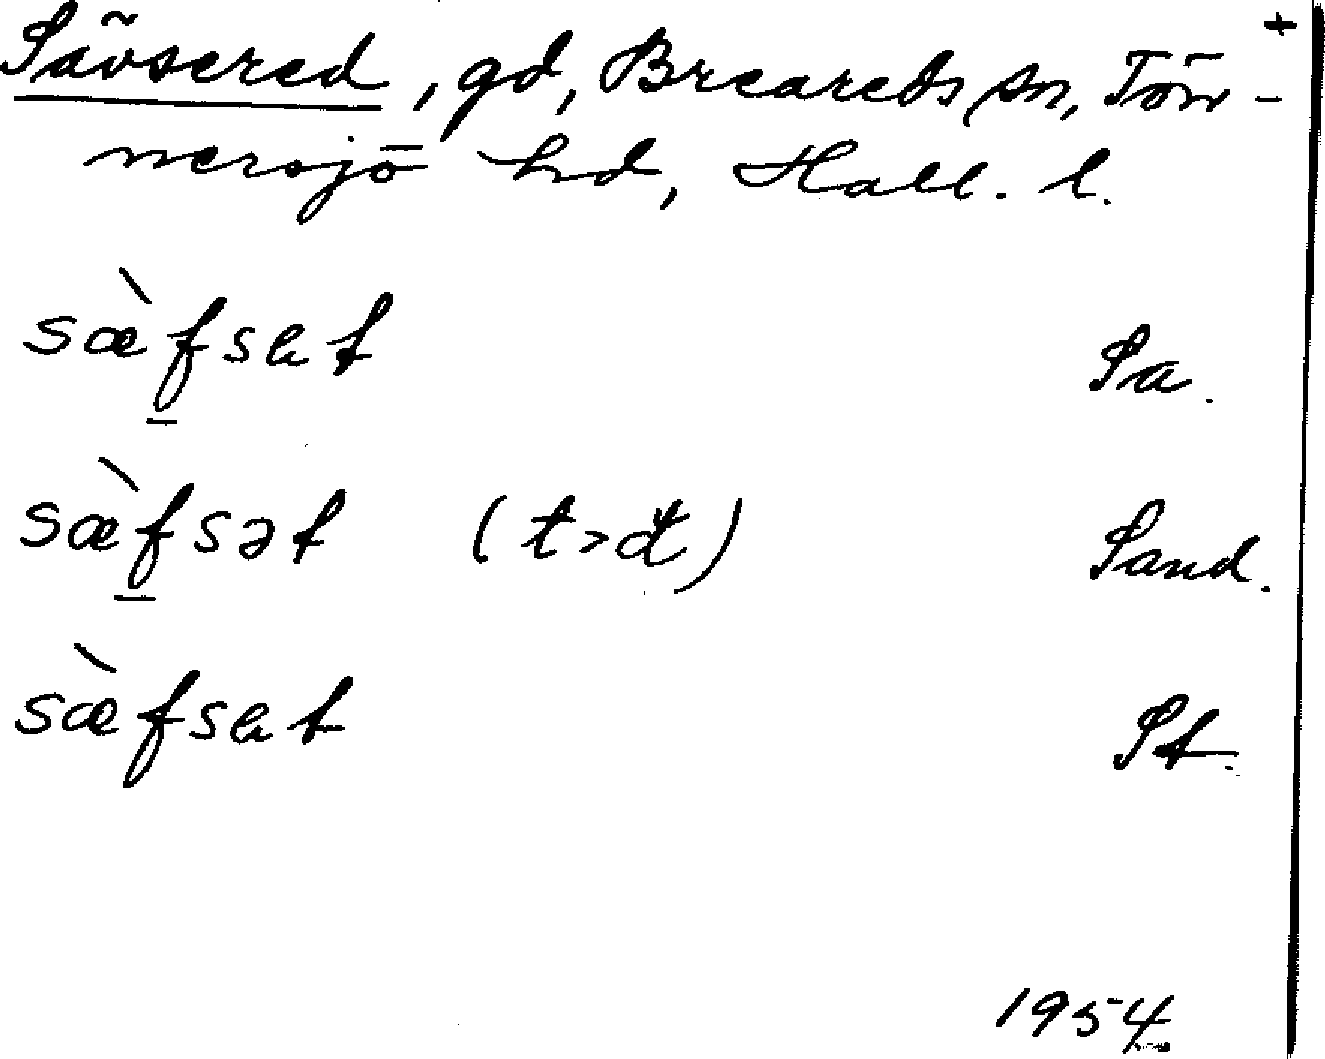 +
Sävsered, gd, Breareds sn, Tön-
nersjö hd, Hall. l.
sæ̀fsat Sa.
sæ̀fsət (t>d) Sand.
sæ̀fsat St.
1954